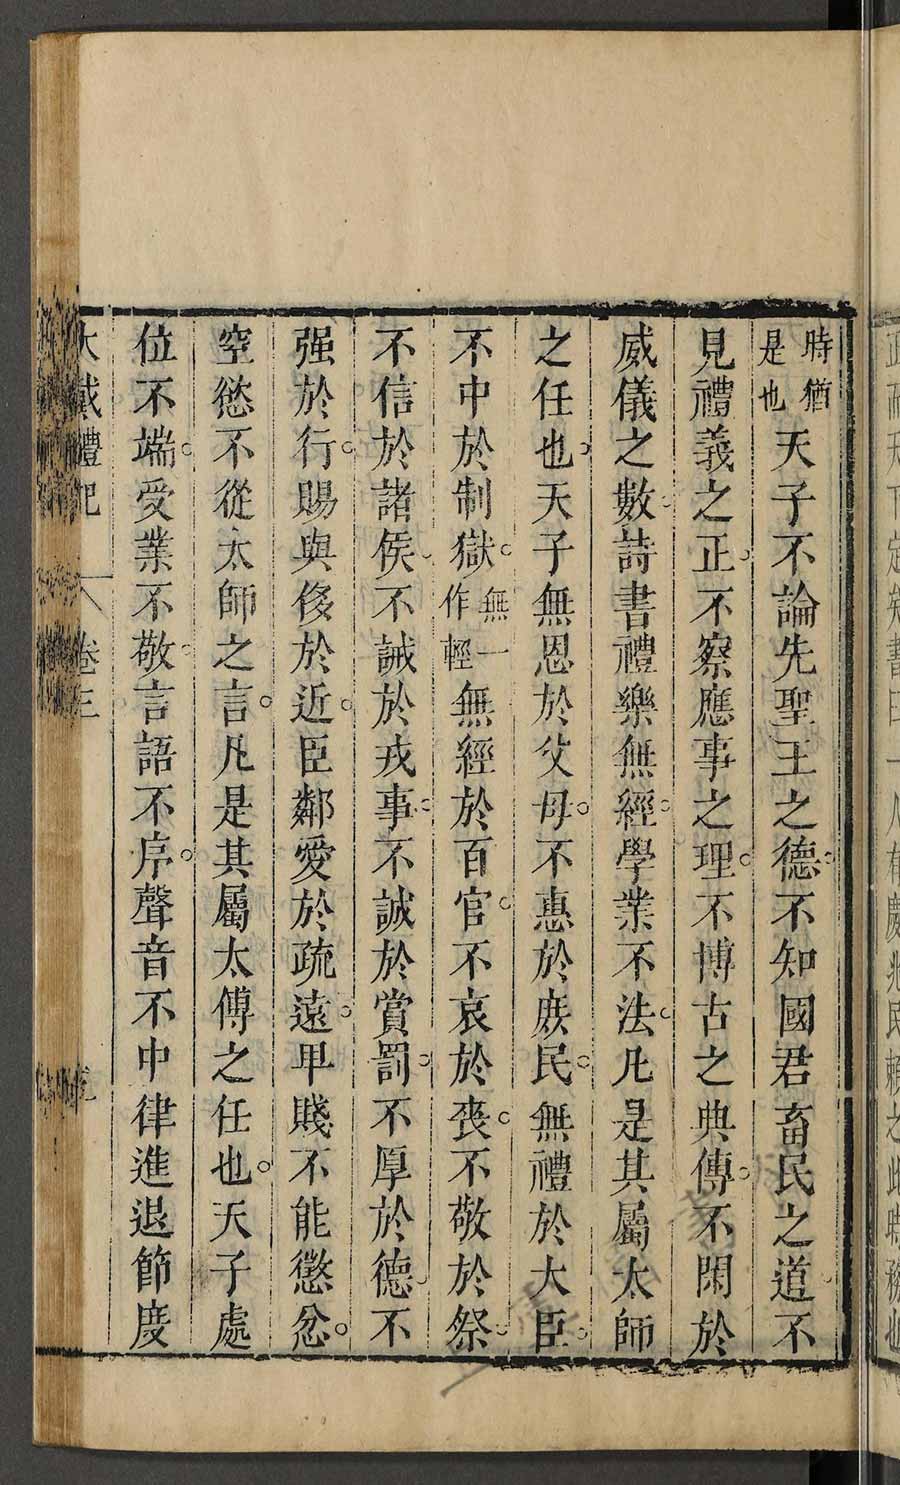 時猶是也天子不論先聖王之德不知國君畜民之道不
見禮義之正不察應事之理不博古之典傳不閑於
威儀之數詩書禮樂無經學業不法凡是其屬太師
之任也天子無恩於父母不惠於庶民無禮於大臣
不中於制獄無一作輕無經於百官不哀於喪不敬於祭
不信於諸侯不誡於戎事不誠於賞罰不厚於德不
强於行賜與侈於近臣鄰愛於疏遠卑賤不能懲忿
窒慾不從太師之言凡是其屬太傅之任也天子處
位不端受業不敬言語不序聲音不中律進退節度
大戴禮記 卷三